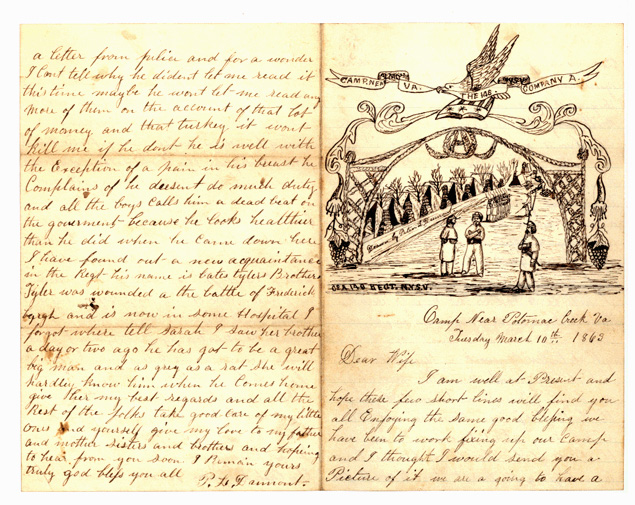 a letter from julia and for a wonder
I Cant tell why he dident let me read it
this time maybe he wont let me read any
more of them on the account of that lot
of money and that turkey it wont
kill me if he dont he is well with
the Exception of a pain in his breast he
Complains of he doesent do much duty
and all the boys Calls him a dead beat on
the goverment because he looks healthier
than he did when he Came down here
I have found out a new acquaintance
in the Regt his name is bates tylers Brother
Tyler was wounded a the battle of Frederick
burgh and is now in some Hospital I
forgot where tell Sarah I saw her brother
a day or two ago he has got to be a great
big man and as grey as a rat she will
hardley know him when he Comes home
give thier my best regards and all the
Rest of the folks take good care of my little
ones and yourself give my love to my father
and mother Sisters and brothers and hopeing
to hear from you soon I Remain yours
truly god bless you all
P. L. Dumont.
CAMP NEAR
VA.
THE 146
N.Y.S.V.
COMPANY A.
Drawn by
CO A REGT. N.Y.S.V.
Camp Near Potomac Creek Va
Tuesday March 10th. 1863
Dear Wife
I am well at Present and
hope these few short lines will find you
all Enjoying the same good blessing we
have been to work fixing up our Camp
and I thought I would send you a
Picture of it. we are a going to have a